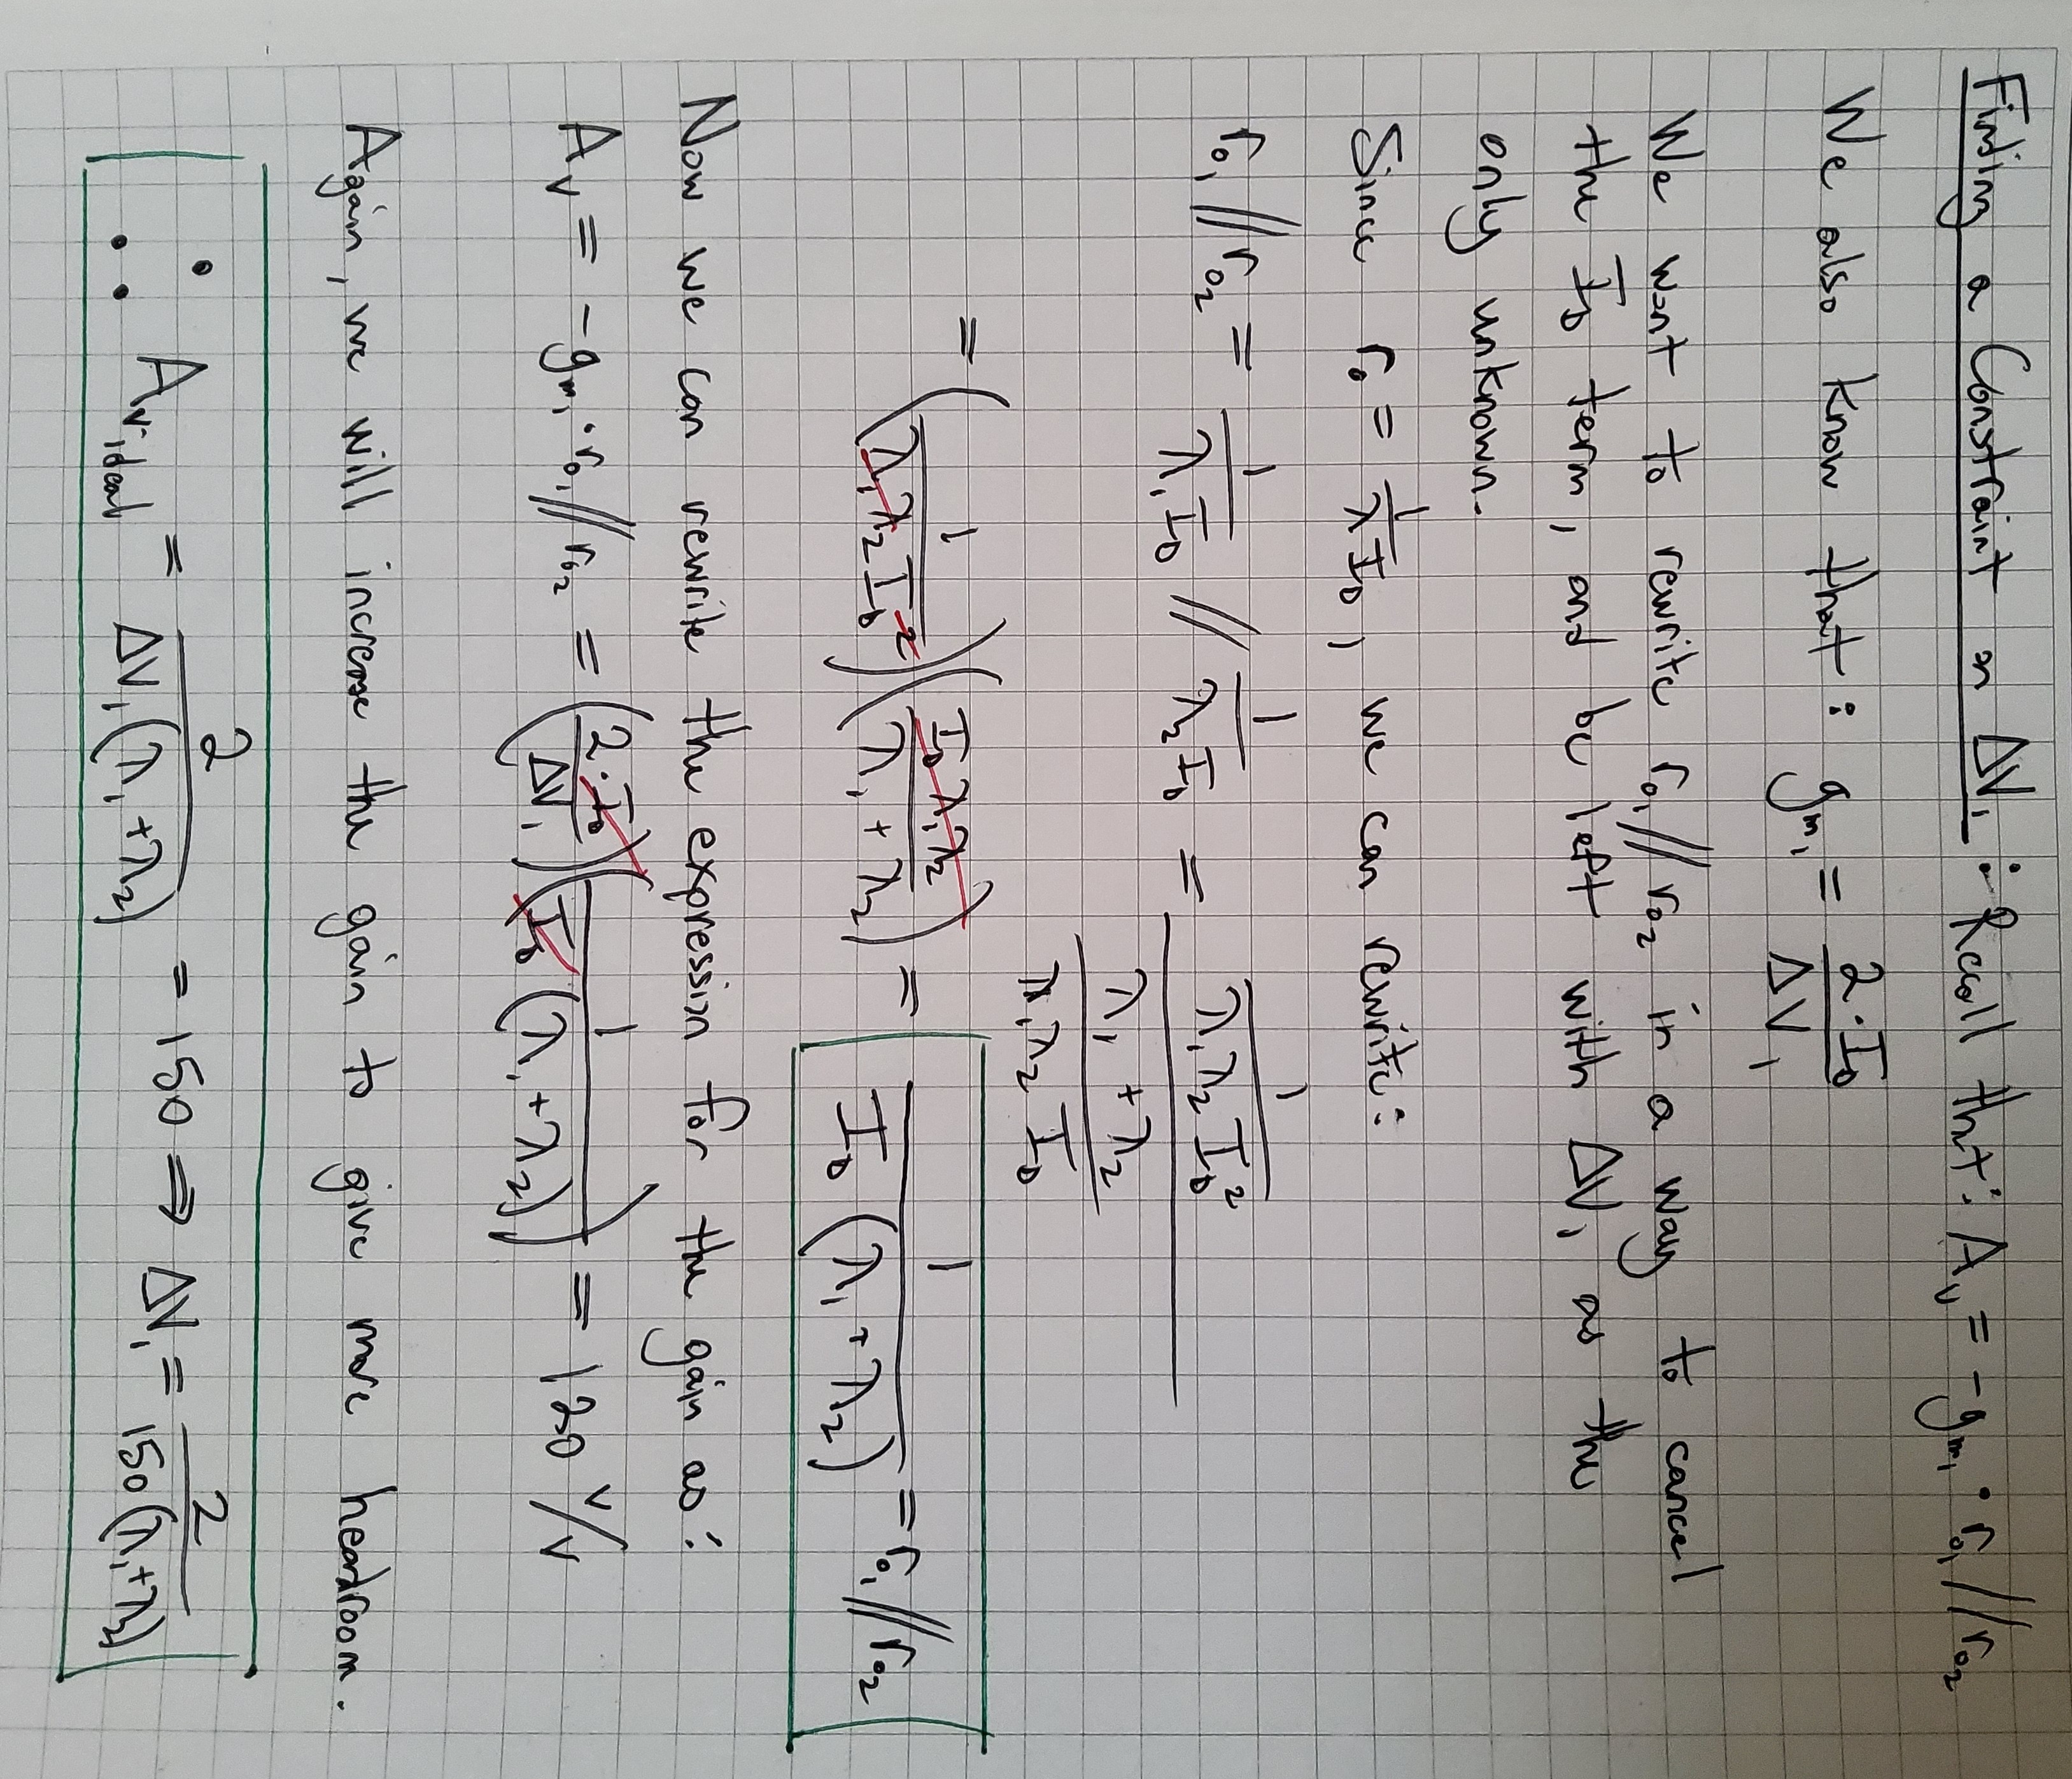 Finding a Constraint on ΔV₁ : Recall that: Aᵥ = -gₘ₁ · r₀₁ // r₀₂
We also know that : gₘ₁ = (2 · I_D) / (ΔV₁)
We want to rewrite r₀₁ // r₀₂ in a way to cancel
the I_D term, and be left with ΔV₁ as the
only unknown.
Since r₀ = 1 / (λ I_D), we can rewrite:
r₀₁ // r₀₂ = 1 / (λ₁ I_D) // 1 / (λ₂ I_D) = (1 / (λ₁ λ₂ I_D²)) / ((λ₁ + λ₂) / (λ₁ λ₂ I_D))
= (1 / (λ₁ λ₂ I_D²)) ((I_D λ₁ λ₂) / (λ₁ + λ₂)) = 1 / (I_D (λ₁ + λ₂)) = r₀₁ // r₀₂
Now we can rewrite the expression for the gain as:
Aᵥ = -gₘ₁ · r₀₁ // r₀₂ = ((2 · I_D) / (ΔV₁)) (1 / (I_D (λ₁ + λ₂))) = 120 V/V
Again, we will increase the gain to give more headroom.
∴ Aᵥ ideal = 2 / (ΔV₁ (λ₁ + λ₂)) = 150 ⇒ ΔV₁ = 2 / (150 (λ₁ + λ₂))